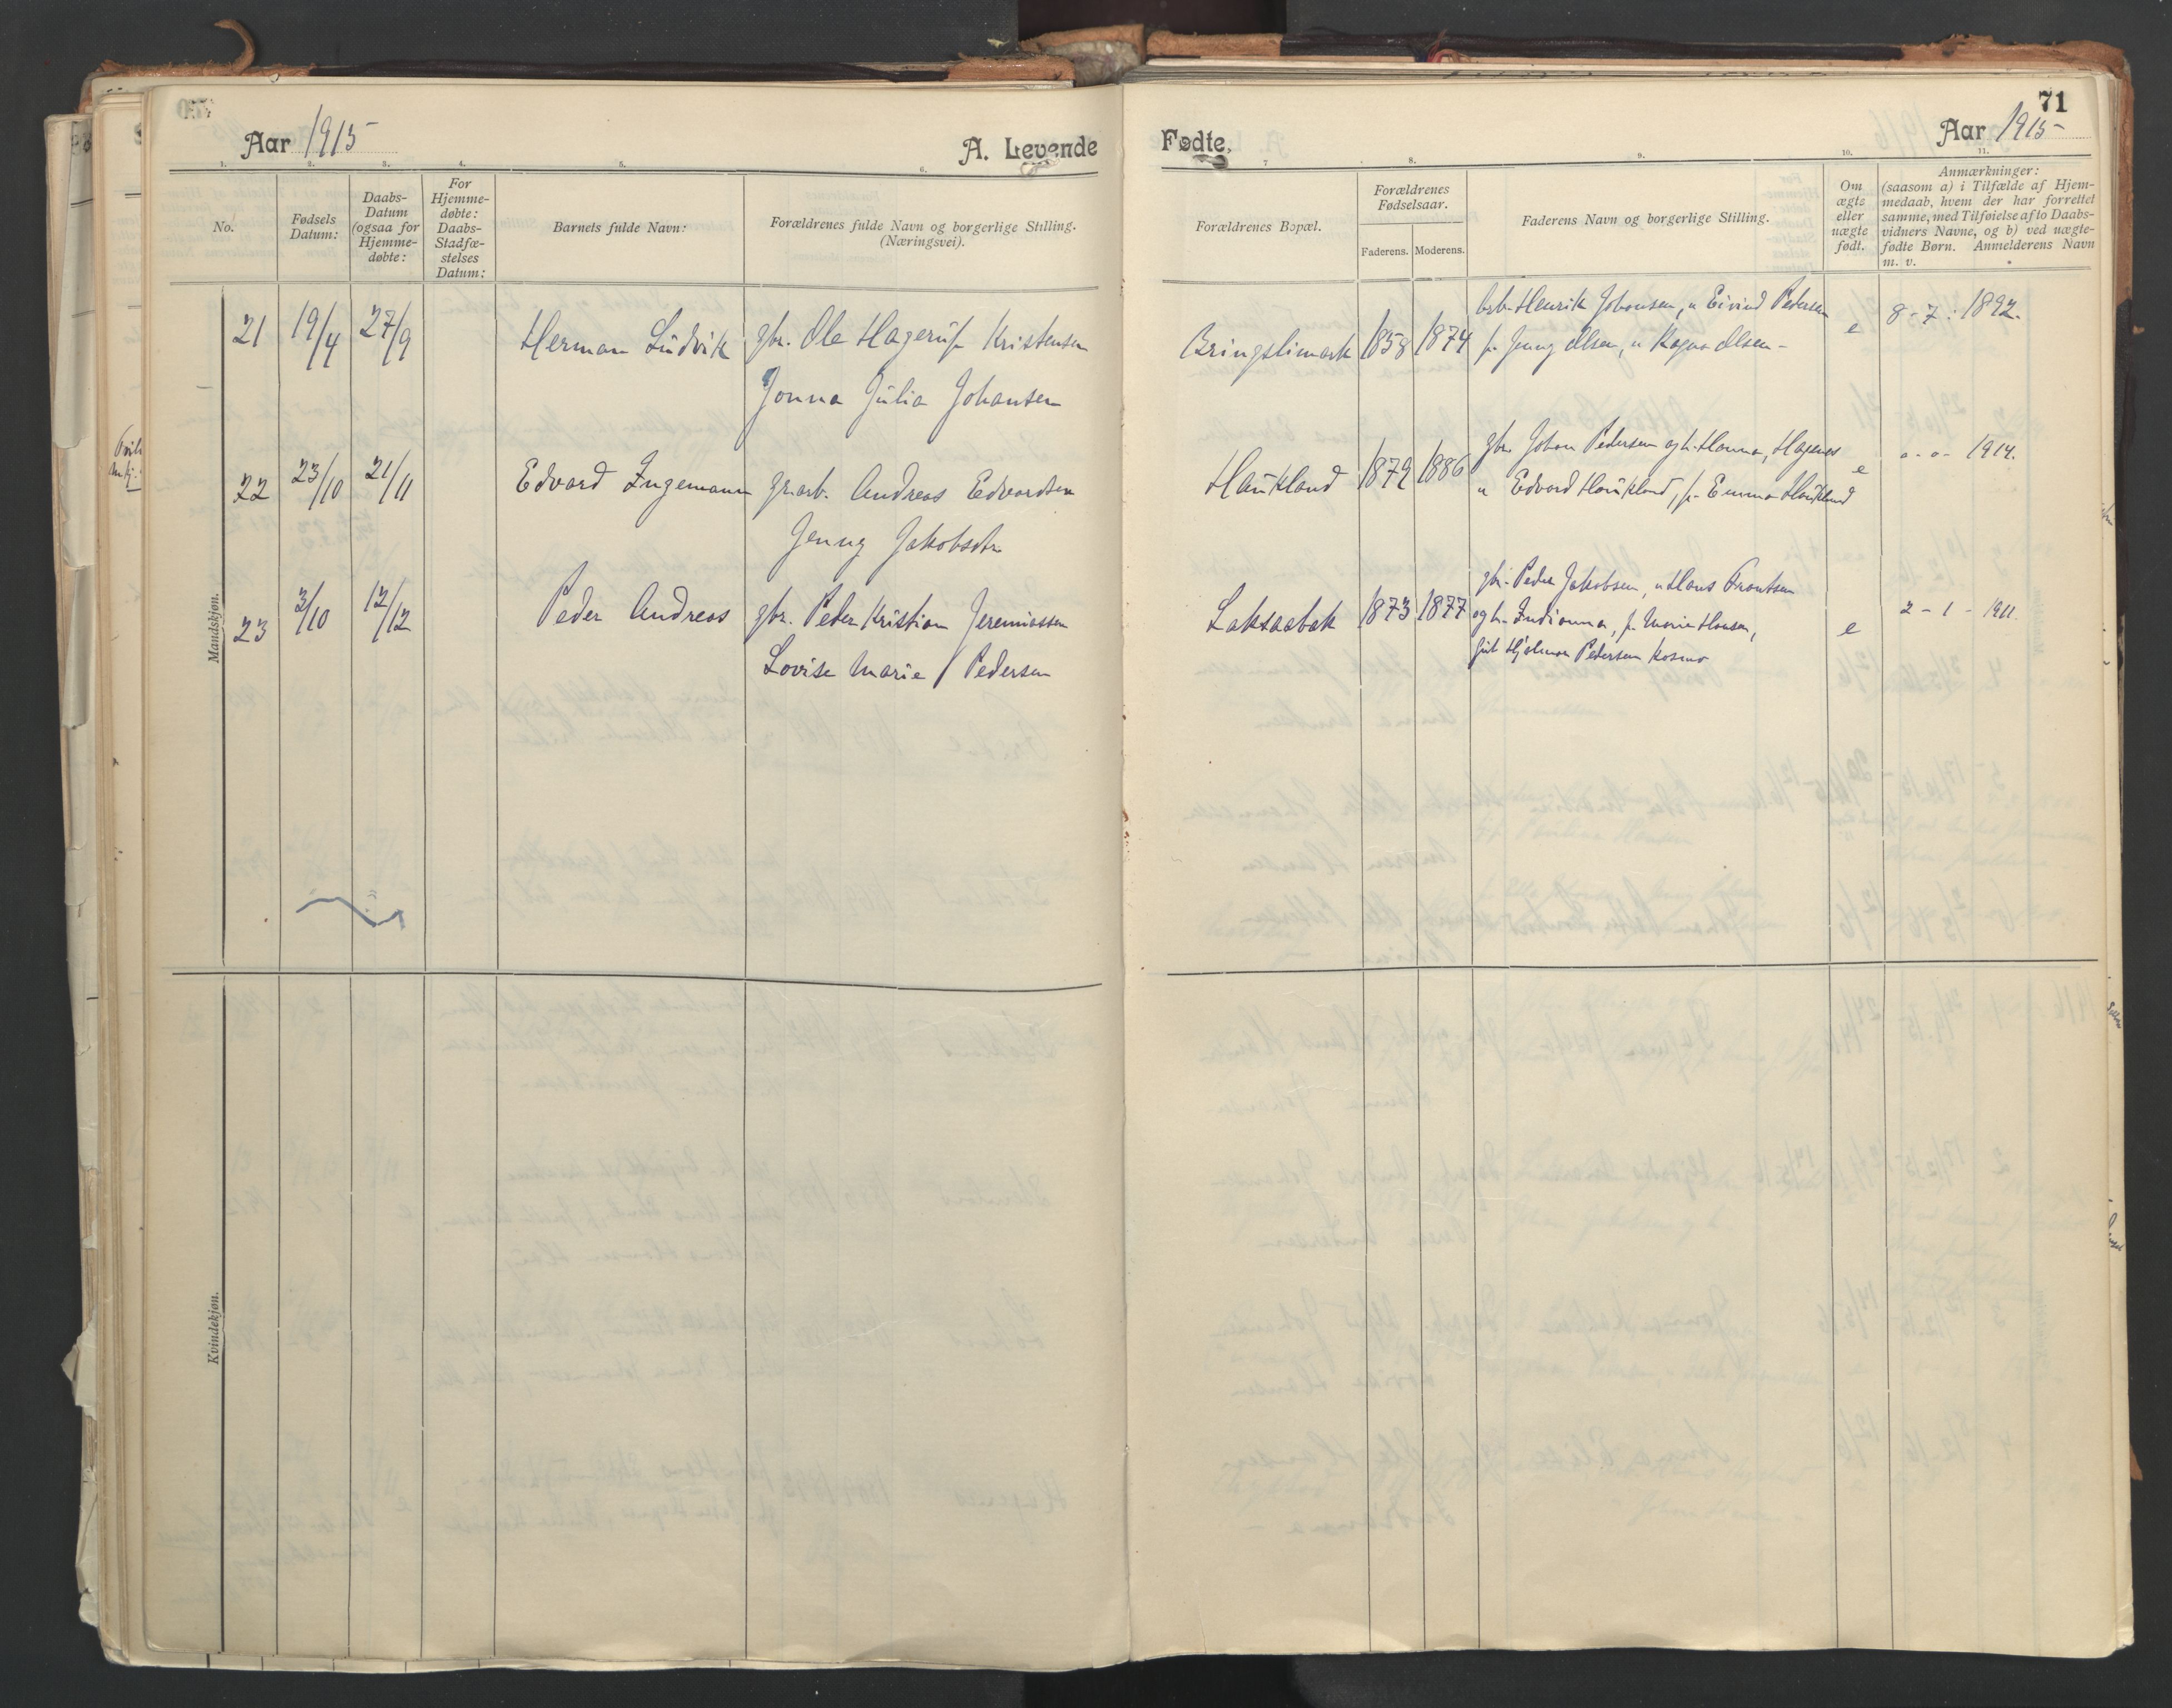 71
Aar 1915
A. Levende
Fødte.
Aar 1915
1. 2. 3. 4. 5. 6. 7 8. 9. 10. 11.
No.
Fødsels
Datum:
Daabs-
Datum
(ogsaa for
Hjemme-
døbte:
For
Hjemme-
døbte:
Daabs-
Stadfæ-
stelses
Datum:
Barnets fulde Navn:
Forældrenes fulde Navn og borgerlige Stilling.
(Næringsvei).
Forældrenes Bopæl.
Forældrenes
Fødselsaar.
Faderens. Moderens.
Faderens Navn og borgerlige Stilling.
Om
ægte
eller
uægte
født.
Anmærkninger:
(saasom a) i Tilfælde af Hjem-
medaab, hvem der har forrettet
samme, med Tilføielse af to Daabs-
vidners Navne, og b) ved uægte-
fødte Børn. Anmelderens Navn
m. v.
Mandskjøn.
21 19/4 27/9 Herman Ludvik gbr. Ole Hagerup Kristensen
Jonna Julia Johansen
Bringslimark 1858 1874
Henrik Johansen, u Eivind Pedersen
p. Jenny Olsen, u Ragna Olsen -
e 8 - 7 - 1892.
22 23/10 21/11 Edvard Ingemann gr.arb. Andreas Edvardsen
Jenny Jakobsdtr
Haukland 1879 1886
gbr Johan Pedersen og h. Hanna, Hagenes
u Edvard Haukland, p. Emma Haukland
e - o - o - 1914.
23 3/10 12/12 Peder Andreas gbr. Peder Kristian Jeremiassen
Lovise Marie Pedersen
Laksaabak 1873 1877
gbr. Peder Jakobsen, u Hans Frantsen
og h. Indianna, p. Marie Hansen,
Hjalmar Pedersen Kosmo
e 2 - 1 - 1911.
Kvindekjøn.